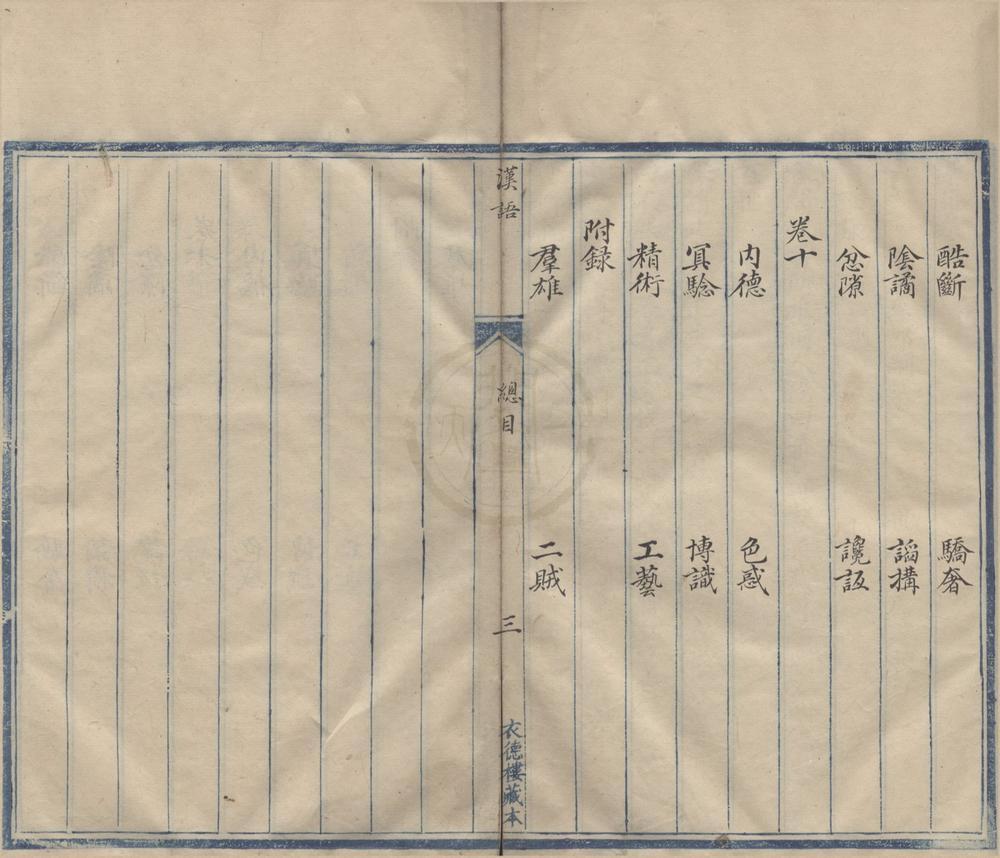 酷斷　驕奢
陰譎　謟搆
忿隙　讒訍
卷十
内德　色惑
冥驗　博識
精術　工藝
附録
羣雄　二賊
漢語　總目　三　衣德樓藏本